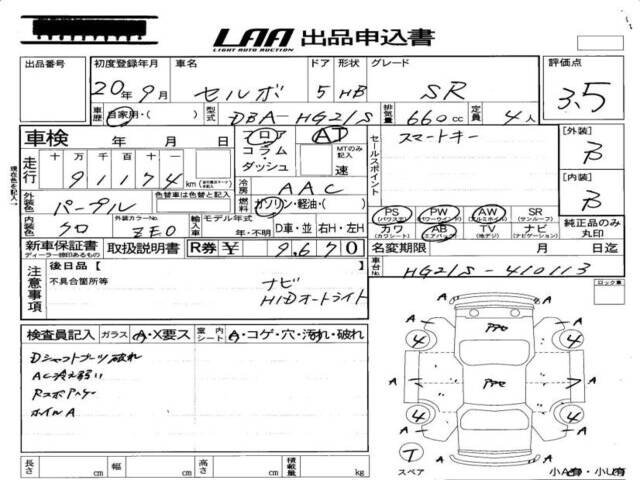 LAA 出品申込書
LIGHT AUTO AUCTION
出品番号 初度登録年月 車名 ドア 形状 グレード 評価点
20年9月 セルボ 5 HB SR 3.5
車歴 自家用・( ) 型式 DBA-HG21S 排気量 660cc 定員 4人
車検 年 月 日 フロア AT セールスポイント スマートキー [外装]
現在色を記入→
走行 十 万 千 百 十 一 コラム・ダッシュ MTのみ記入 速 B
91174 km
冷房 AAC [内装]
外装色 パープル 色替車は色替と記入 燃料 ガソリン・軽油・( ) B
PS PW AW SR
(パワステ) (パワーウインドウ) (アルミホイル) (サンルーフ)
内装色 クロ 外装カラーNo. ZE0 輸入車 モデル年式 年・不明 D車・並 右H・左H カワ AB TV ナビ 純正品のみ丸印
(カワシート) (エアバッグ) (地デジ) (ナビゲーション)
新車保証書 取扱説明書 R券 ¥ 9,670 名変期限 月 日迄
ディーラー捺印あるもの
車台No. HG21S-410113
注意事項 後日品【 】 ナビ
不具合箇所等 HIDオートライト
ロック車
検査員記入 ガラス A・X要ス 室内シート A・コゲ・穴・汚れ・破れ
Dシャフトブーツ破れ
AC冷え弱い
ホイルA
A A
4 4
A A
A A
4 4
A A
T
スペア
小A有・小U有
長さ cm 幅 cm 高さ cm 積載量 kg